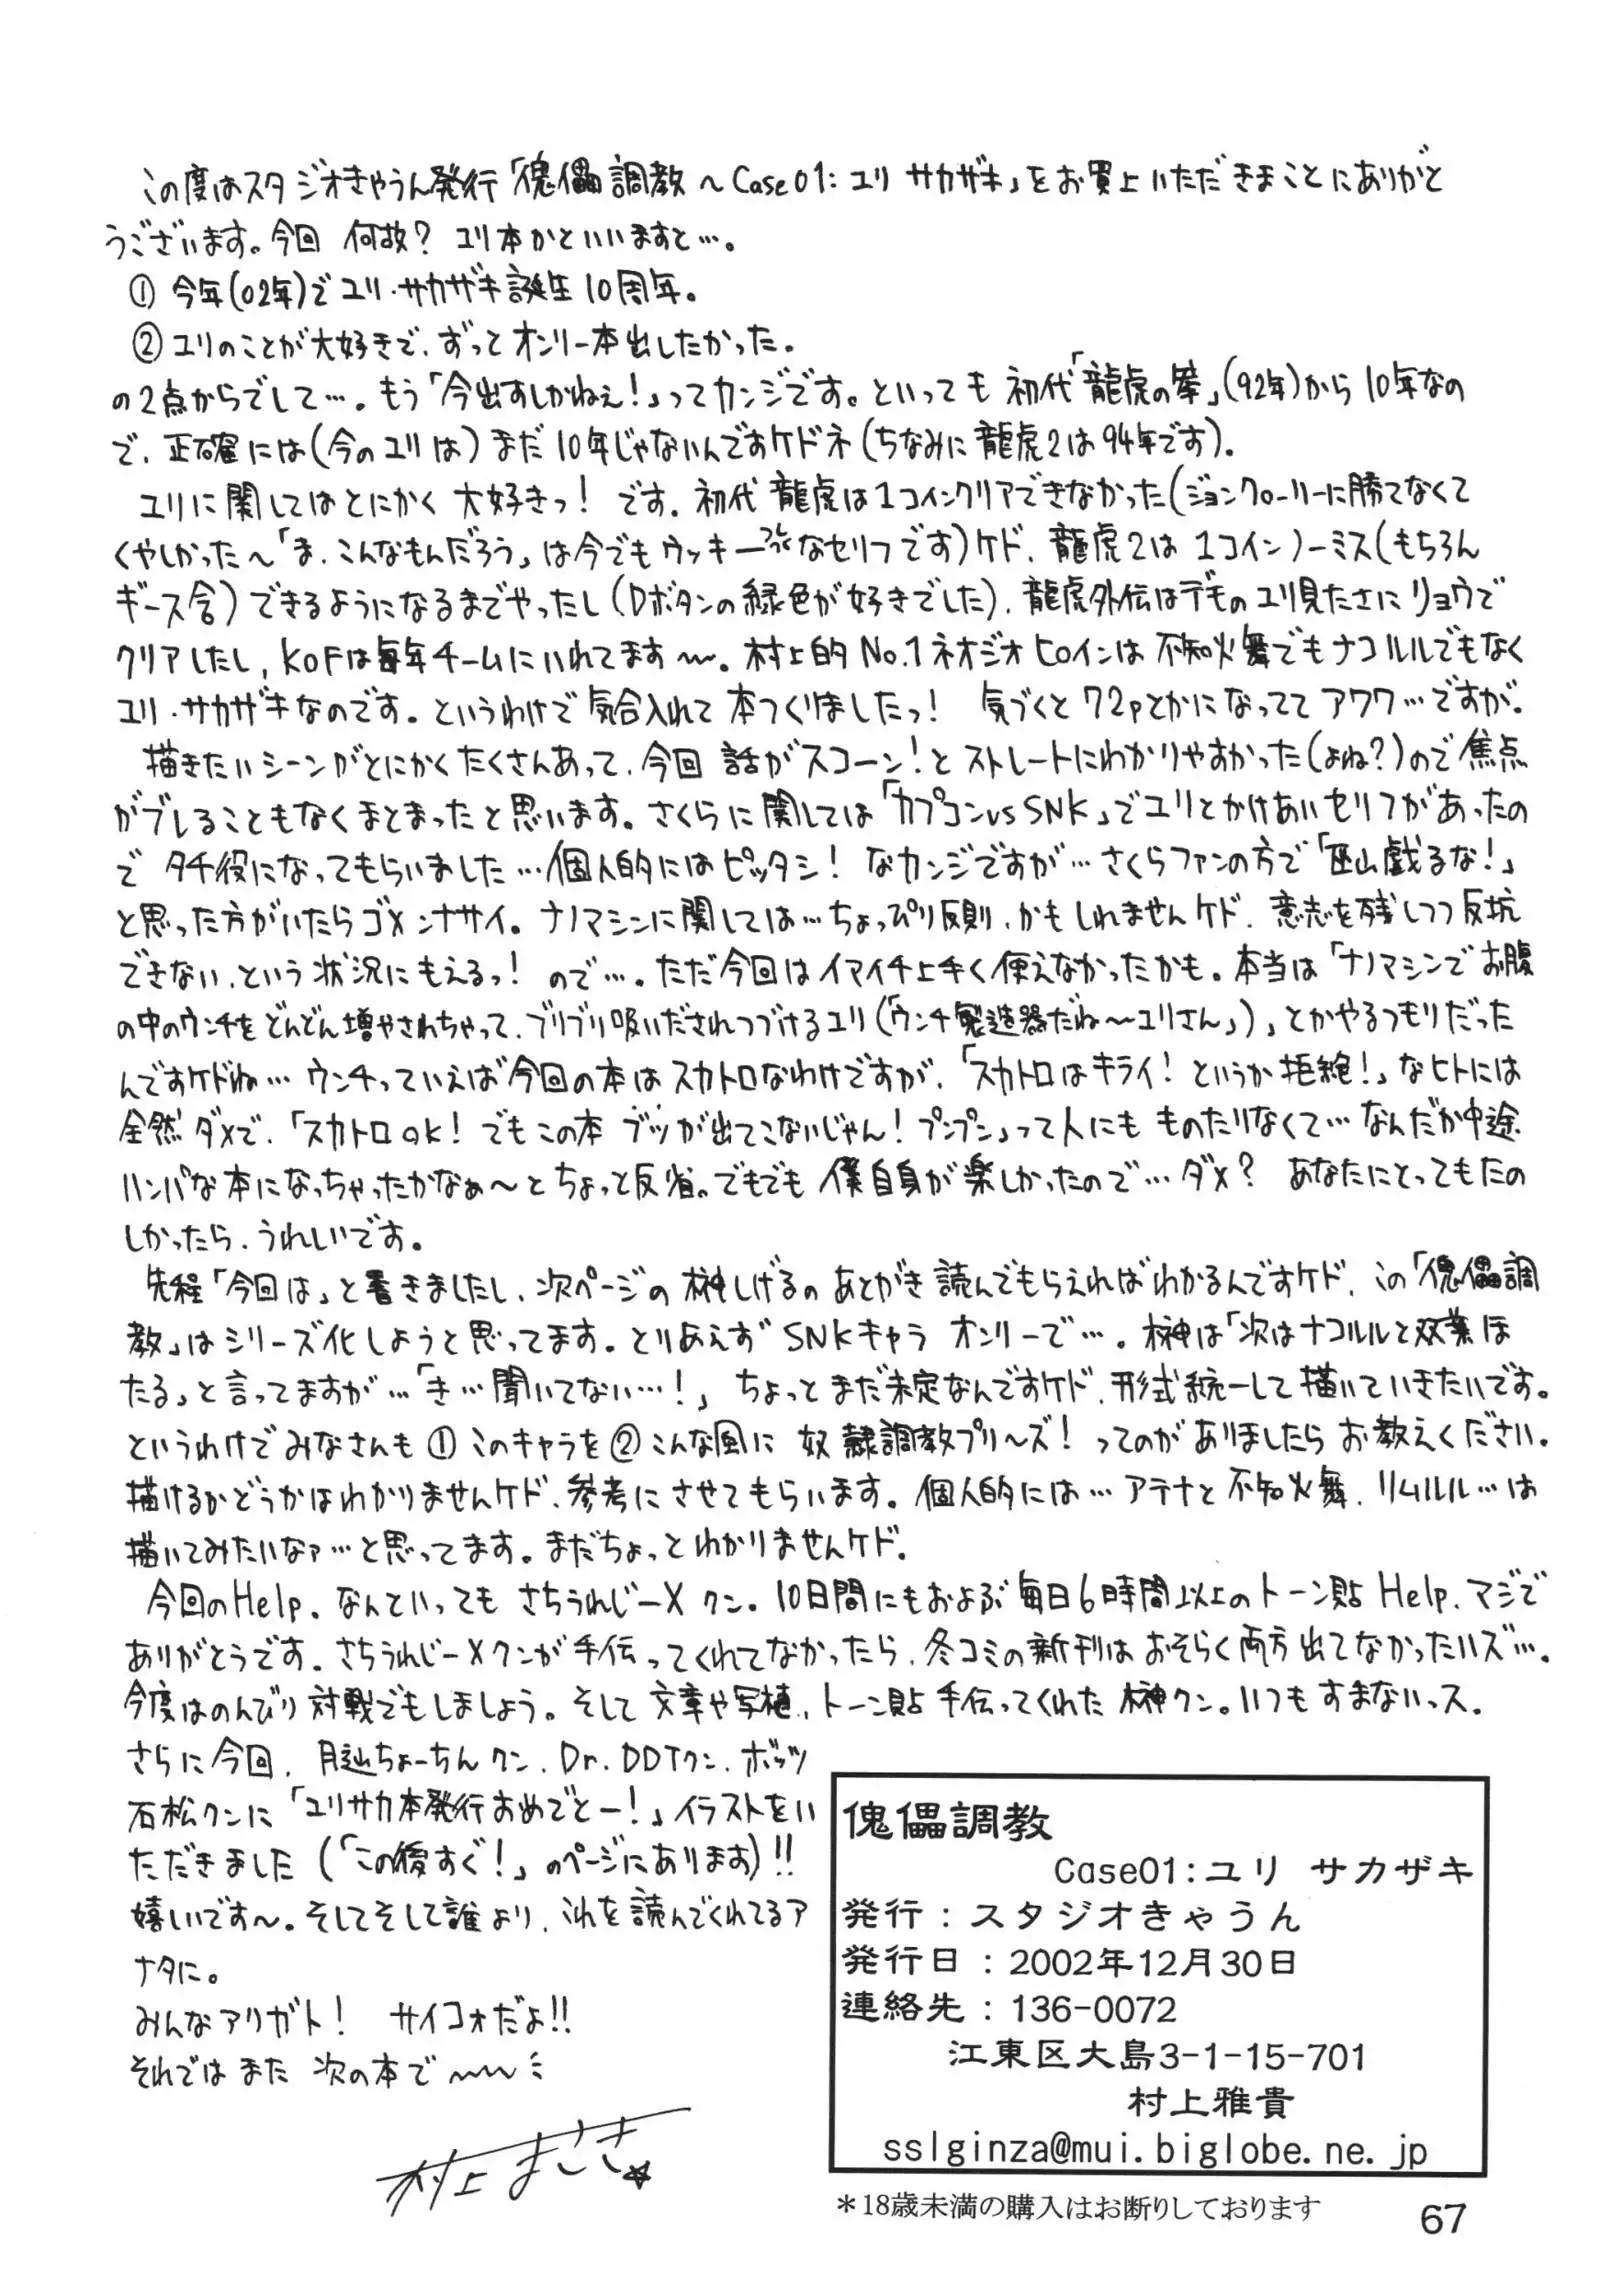 この度はスタジオきゃうん発行「傀儡調教～Case01:ユリ サカザキ」をお買上いただきまことにありがと
うございます。今回 何故? ユリ本かといいますと…。
① 今年(02年)でユリ・サカザキ誕生10周年。
② ユリのことが大好きで、ずっとオンリー本出したかった。
の2点からでして…。もう「今出すしかねぇ!」ってカンジです。といっても 初代「龍虎の拳」(92年)から10年なの
で、正確には(今のユリは)まだ10年じゃないんですケドネ(ちなみに龍虎2は94年です)。
ユリに関してはとにかく 大好きっ! です。初代龍虎は1コインクリアできなかった(ジョンクローリーに勝てなくて
くやしかった～「ま、こんなもんだろう」は今でもウッキーなセリフです)ケド、龍虎2は1コインノーミス(もちろん
ギース含)できるようになるまでやったし(Dボタンの緑色が好きでした)、龍虎外伝はデモのユリ見たさにリョウで
クリアしたし、KOFは毎年チームにいれてます～。村上的No.1ネオジオヒロインは不知火舞でもナコルルでもなく
ユリ・サカザキなのです。というわけで気合入れて本つくりましたっ! 気づくと72pとかになっててアワワ…ですが。
描きたいシーンがとにかくたくさんあって、今回 話がスコーン!とストレートにわかりやすかった(よね?)ので焦点
がブレることもなくまとまったと思います。さくらに関しては「カプコンvsSNK」でユリとかけあいセリフがあったの
で タチ役になってもらいました…個人的にはピッタシ! なカンジですが…さくらファンの方で「巫山戯るな!」
と思った方がいたらゴメンナサイ。ナノマシンに関しては…ちょっぴり反則、かもしれませんケド、意志を残しつつ反抗
できない、という状況にもえるっ! ので…。ただ今回はイマイチ上手く使えなかったかも。本当は「ナノマシンでお腹
の中のウンチをどんどん増やされちゃって、ブリブリ吸いだされつづけるユリ(「ウンチ製造器だね～ユリさん」)」とかやるつもりだった
んですケドね…ウンチっていえば今回の本はスカトロなわけですが、「スカトロはキライ! というか拒絶!」なヒトには
全然ダメで、「スカトロok! でもこの本 ブツが出てこないじゃん! プンプン」って人にも ものたりなくて…なんだか中途
ハンパな本になっちゃったかなぁ～とちょっと反省。でもでも 僕自身が楽しかったので…ダメ? あなたにとってもたの
しかったら、うれしいです。
先程「今回は」と書きましたし、次ページの榊しげるのあとがき読んでもらえればわかるんですケド、この「傀儡調
教」はシリーズ化しようと思ってます。とりあえずSNKキャラ オンリーで…。榊は「次はナコルルと双葉ほ
たる」と言ってますが…「き…聞いてない…!」 ちょっとまだ未定なんですケド、形式統一して描いていきたいです。
というわけでみなさんも ① このキャラを ② こんな風に 奴隷調教プリ～ズ! ってのがありましたらお教えください。
描けるかどうかはわかりませんケド、参考にさせてもらいます。個人的には…アテナと不知火舞、リムルル…は
描いてみたいなァ…と思ってます。まだちょっとわかりませんケド。
今回のHelp。なんといっても さちうれじーXクン。10日間にもおよぶ毎日6時間以上のトーン貼Help、マジで
ありがとうです。さちうれじーXクンが手伝ってくれてなかったら、冬コミの新刊はおそらく両方出てなかったハズ…。
今度はのんびり対戦でもしましょう。そして文章や写植、トーン貼手伝ってくれた 榊クン。いつもすまないっス。
さらに今回、月辿ちょーちんクン、Dr.DDTクン、ボッツ
石松クンに「ユリサカ本発行おめでとー!」イラストをい
ただきました(「この後すぐ!」のページにあります)!!
嬉しいです～。そしてそして誰より、これを読んでくれてるア
ナタに。
みんなアリガト! サイコォだよ!!
それではまた 次の本で～～
村上まさき☆
傀儡調教
Case01:ユリ サカザキ
発行:スタジオきゃうん
発行日:2002年12月30日
連絡先:136-0072
江東区大島3-1-15-701
村上雅貴
sslginza@mui.biglobe.ne.jp
*18歳未満の購入はお断りしております
67